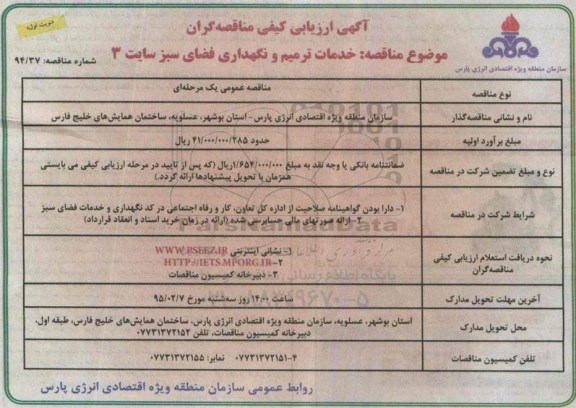 نوبت اول
آگهی ارزیابی کیفی مناقصه‌گران
موضوع مناقصه: خدمات ترمیم و نگهداری فضای سبز سایت ۳
شماره مناقصه: ۹۴/۳۷
سازمان منطقه ویژه اقتصادی انرژی پارس
نوع مناقصه
مناقصه عمومی یک مرحله‌ای
نام و نشانی مناقصه‌گذار
سازمان منطقه ویژه اقتصادی انرژی پارس- استان بوشهر، عسلویه، ساختمان همایش‌های خلیج فارس
مبلغ برآورد اولیه
حدود ۴۱/۰۰۰/۰۰۰/۲۸۵ ریال
نوع و مبلغ تضمین شرکت در مناقصه
ضمانتنامه بانکی یا وجه نقد به مبلغ ۱/۶۵۴/۰۰۰/۰۰۰ریال (که پس از تایید در مرحله ارزیابی کیفی می بایستی
همزمان با تحویل پیشنهادها ارائه گردد.)
شرایط شرکت در مناقصه
۱- دارا بودن گواهینامه صلاحیت از اداره کل تعاون، کار و رفاه اجتماعی در کد نگهداری و خدمات فضای سبز
۲-ارائه صورتهای مالی حسابرسی شده (ارائه در زمان خرید اسناد و انعقاد قرارداد)
نحوه دریافت استعلام ارزیابی کیفی
مناقصه‌گران
۱- نشانی اینترنتی WWW.PSEEZ.IR
۲- HTTP://IETS.MPORG.IR
۳- دبیرخانه کمیسیون مناقصات
آخرین مهلت تحویل مدارک
ساعت ۱۴:۰۰ روز سه‌شنبه مورخ ۹۵/۰۲/۷
محل تحویل مدارک
استان بوشهر، عسلویه، سازمان منطقه ویژه اقتصادی انرژی پارس، ساختمان همایش‌های خلیج فارس، طبقه اول،
دبیرخانه کمیسیون مناقصات، تلفن ۰۷۷۳۱۳۷۲۱۵۲
تلفن کمیسیون مناقصات
۰۷۷۳۱۳۷۲۱۵۱-۴ نمابر: ۰۷۷۳۱۳۷۲۱۵۵
روابط عمومی سازمان منطقه ویژه اقتصادی انرژی پارس